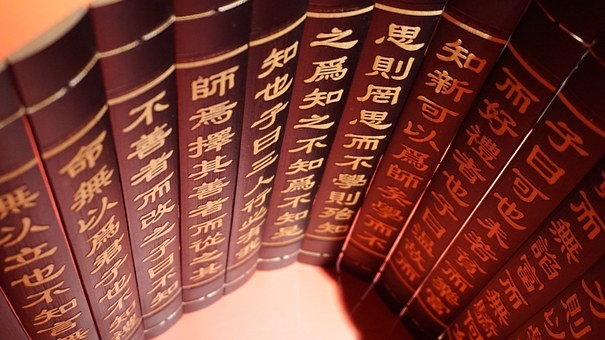 而無諂富而無驕
子曰可也未若貧而樂富
而好禮者也子曰溫故而
知新可以爲師矣學而不
思則罔思而不學則殆知
之爲知之不知爲不知是
知也子曰三人行必有我
師焉擇其善者而從之其
不善者而改之子曰不知
命無以爲君子也不知禮
無以立也不知言無